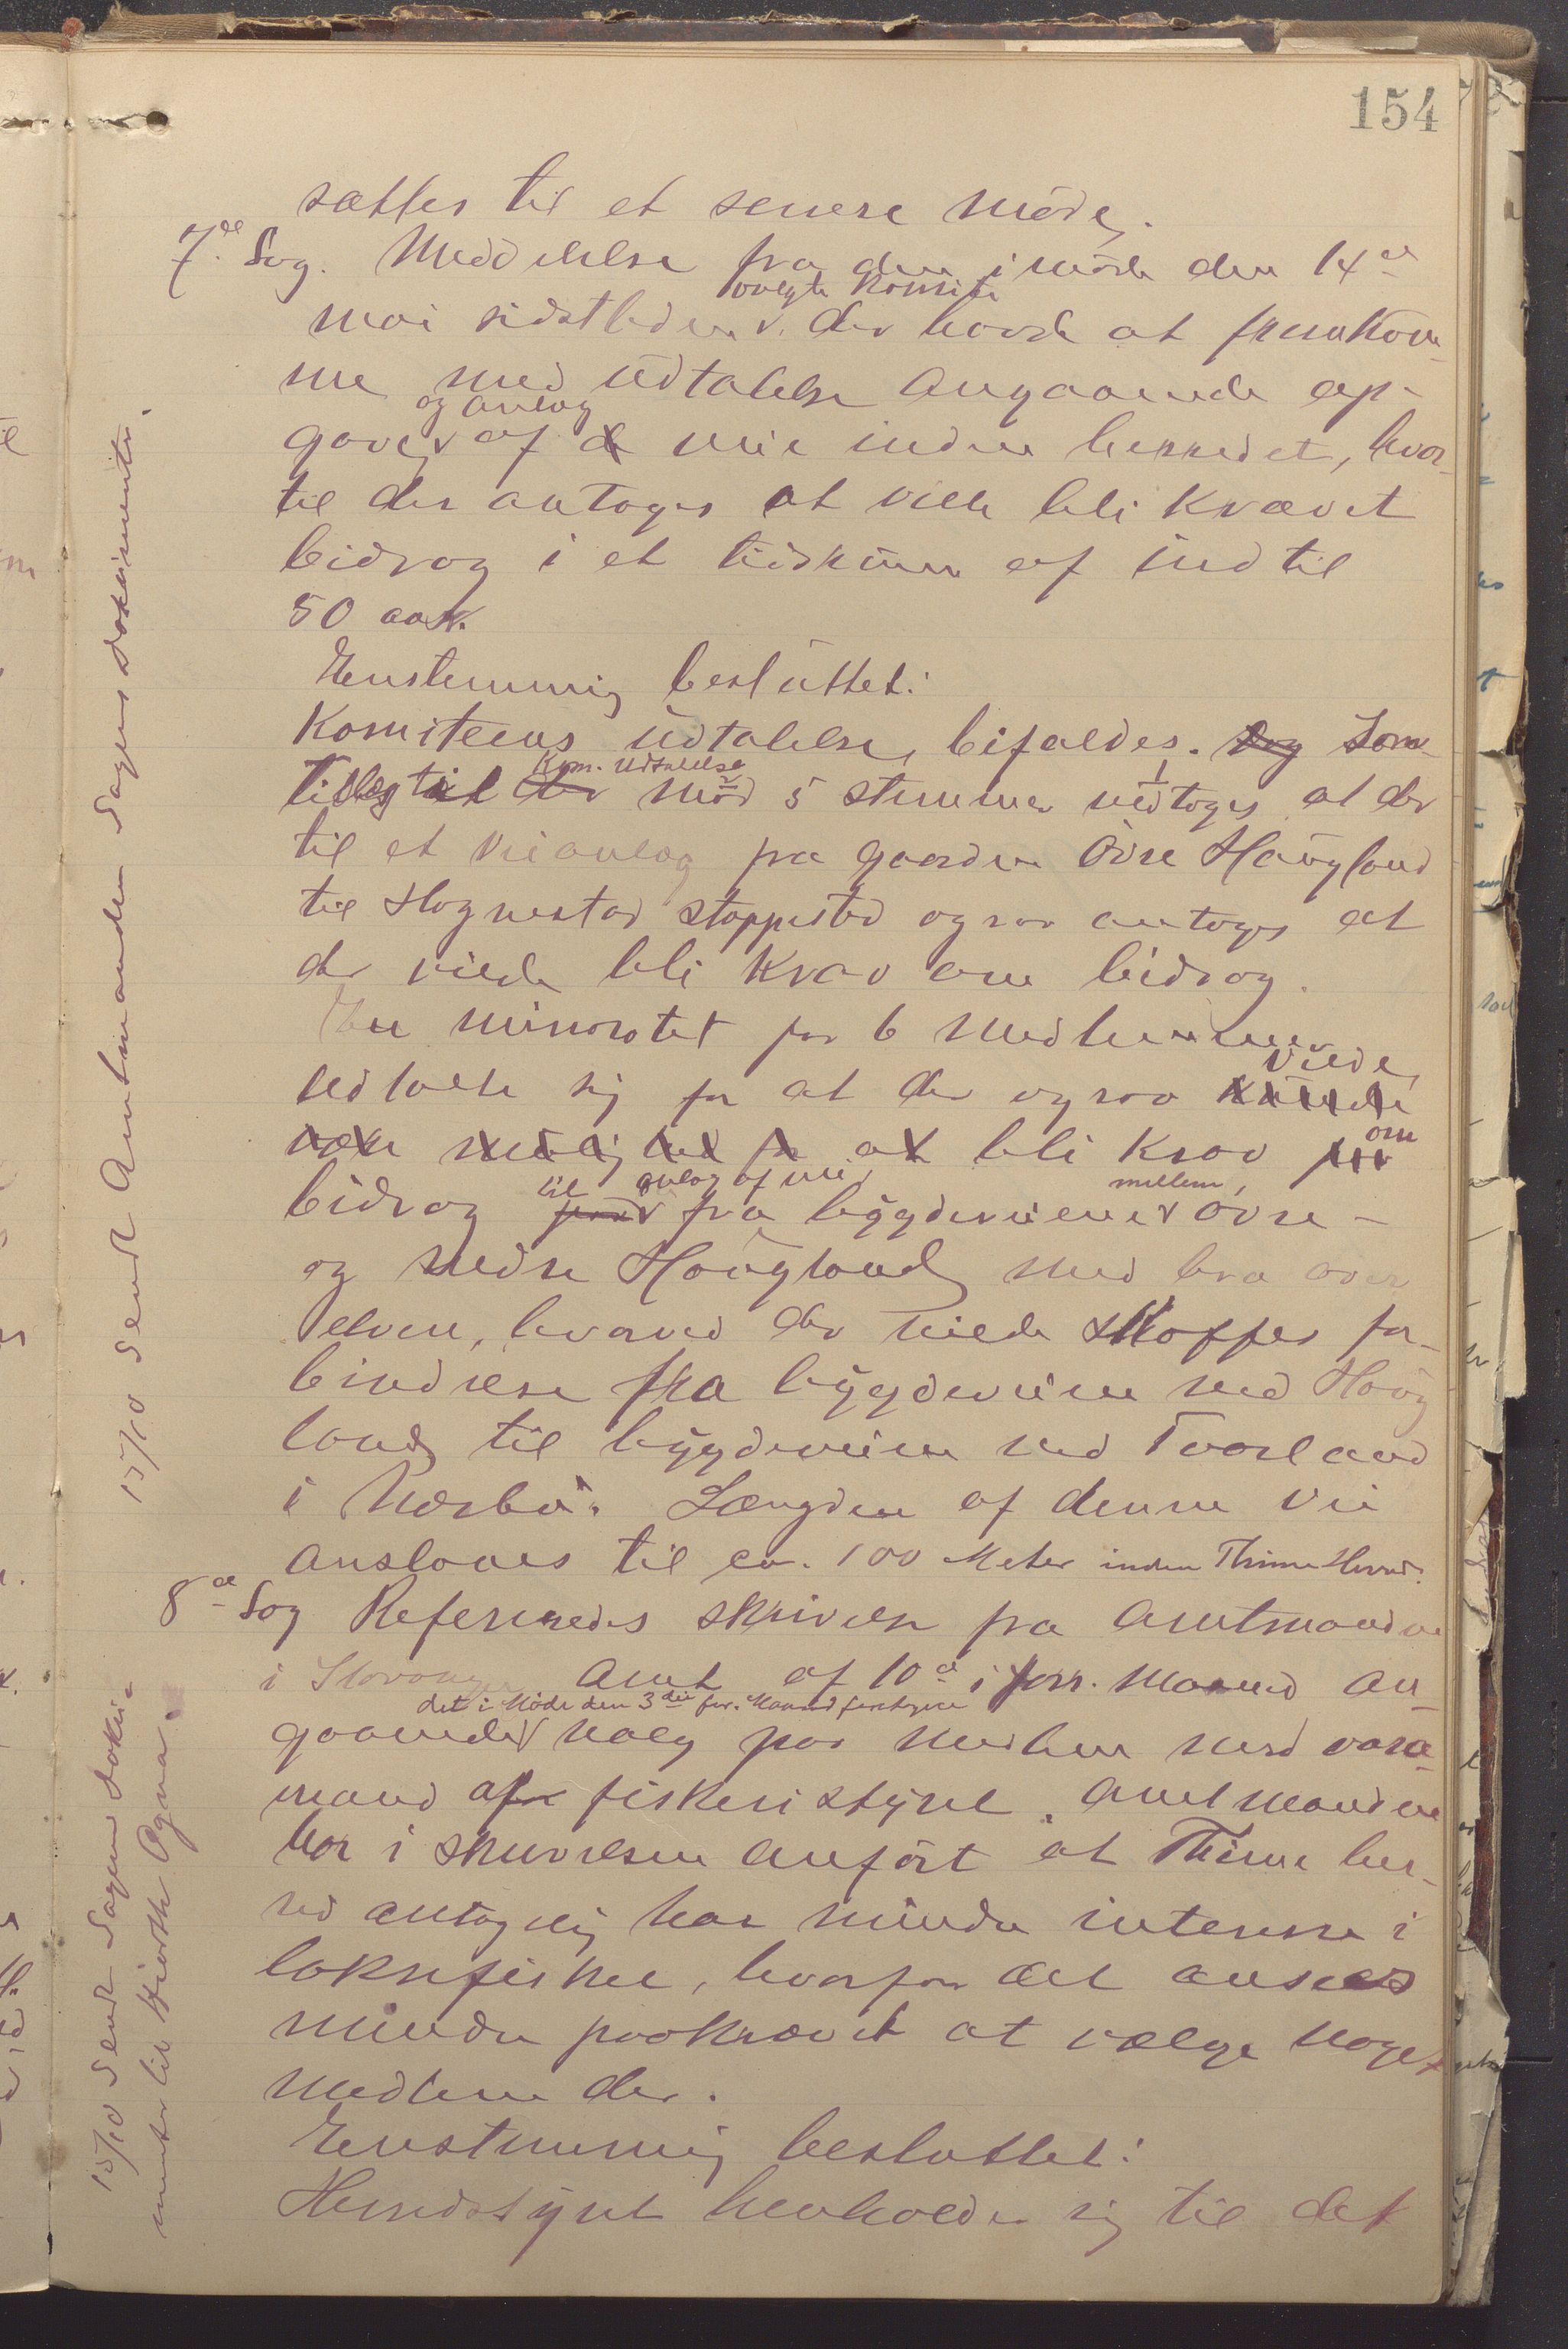 154
sættes til et senere møde.
7de Sag. Meddelelse fra den i møde den 14de
valgte Komite
mai sidstleden v. der havde at fremkom-
me med udtalelse angaaende op-
og anlæg
gave v af vei inden herredet, hvor-
til der antoges at ville bli krævet
bidrag i et tidsrum af indtil
50 aar.
Enstemmig besluttet:
Komiteens udtalelse bifaldes. Som
Kom. Udtalelse
tillæg til mod 5 stemmer vedtoges at der
til et veianlæg fra gaarden Øvre Haugland
til Hognestad stoppested ogsaa antoges at
der vilde bli krav om bidrag.
En minoritet paa 6 medlemmer
vilde
udtalte sig for at der ogsaa
om
bli krav
til anlæg af vei mellem
bidrag fra bygdeveiene v øvre-
og nedre Haugland med bro over
elven, hvorved der vilde skaffes for-
bindelse fra bygdeveien ved Haug-
land til bygdeveien ved Tvorland
i Nærbø. Længden af denne vei
ansloaes til ca. 100 Meter inden Thime Herred.
8de Sag Refereredes skrivelse fra Amtmanden
i Stavanger Amt af 10de i forr. Maaned an-
det i Møde den 3die for. Maaned foretagne
gaaende v valg paa medlem med vara-
mand af fiskeristyret. Amtmanden
har i skrivelsen anført at Thime her-
red antagelig har mindre interesse i
laksefisket, hvorfor det ansees
mindre paakrævet at vælge noget
medlem der.
Enstemmig besluttet:
Herredsstyret henholder sig til det
15/10 Sendt Amtmanden Sagens Dokumenter.
15/10 Sendt Sagens Doku-
menter til Hjorth Ogna.